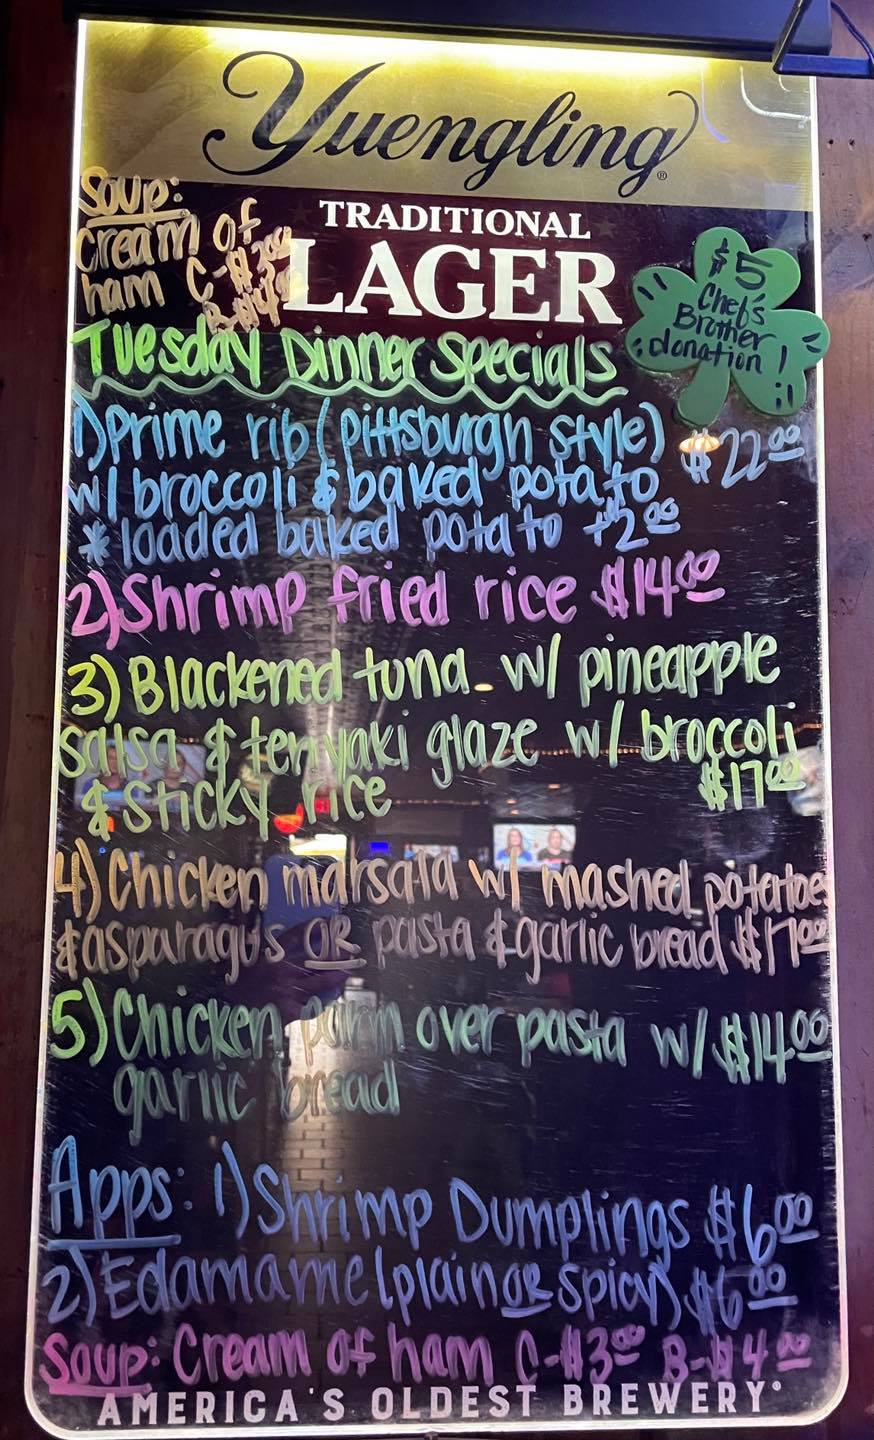 Yuengling®
TRADITIONAL
LAGER
Soup:
Cream of
ham C-$3.00
B-$4.00
$5
Chef's
Brother
donation!
Tuesday Dinner Specials
1) Prime rib (pittsburgh style) $22.00
w/ broccoli & baked potato
* loaded baked potato +2.00
2) Shrimp fried rice $14.00
3) Blackened tuna w/ pineapple
salsa & teriyaki glaze w/ broccoli
& sticky rice $17.00
4) Chicken marsala w/ mashed potatoes
& asparagus OR pasta & garlic bread $17.00
5) Chicken parm over pasta w/ $14.00
garlic bread
Apps: 1) Shrimp Dumplings $6.00
2) Edamame (plain OR spicy) $6.00
Soup: Cream of ham C-$3.00 B-$4.00
AMERICA'S OLDEST BREWERY®